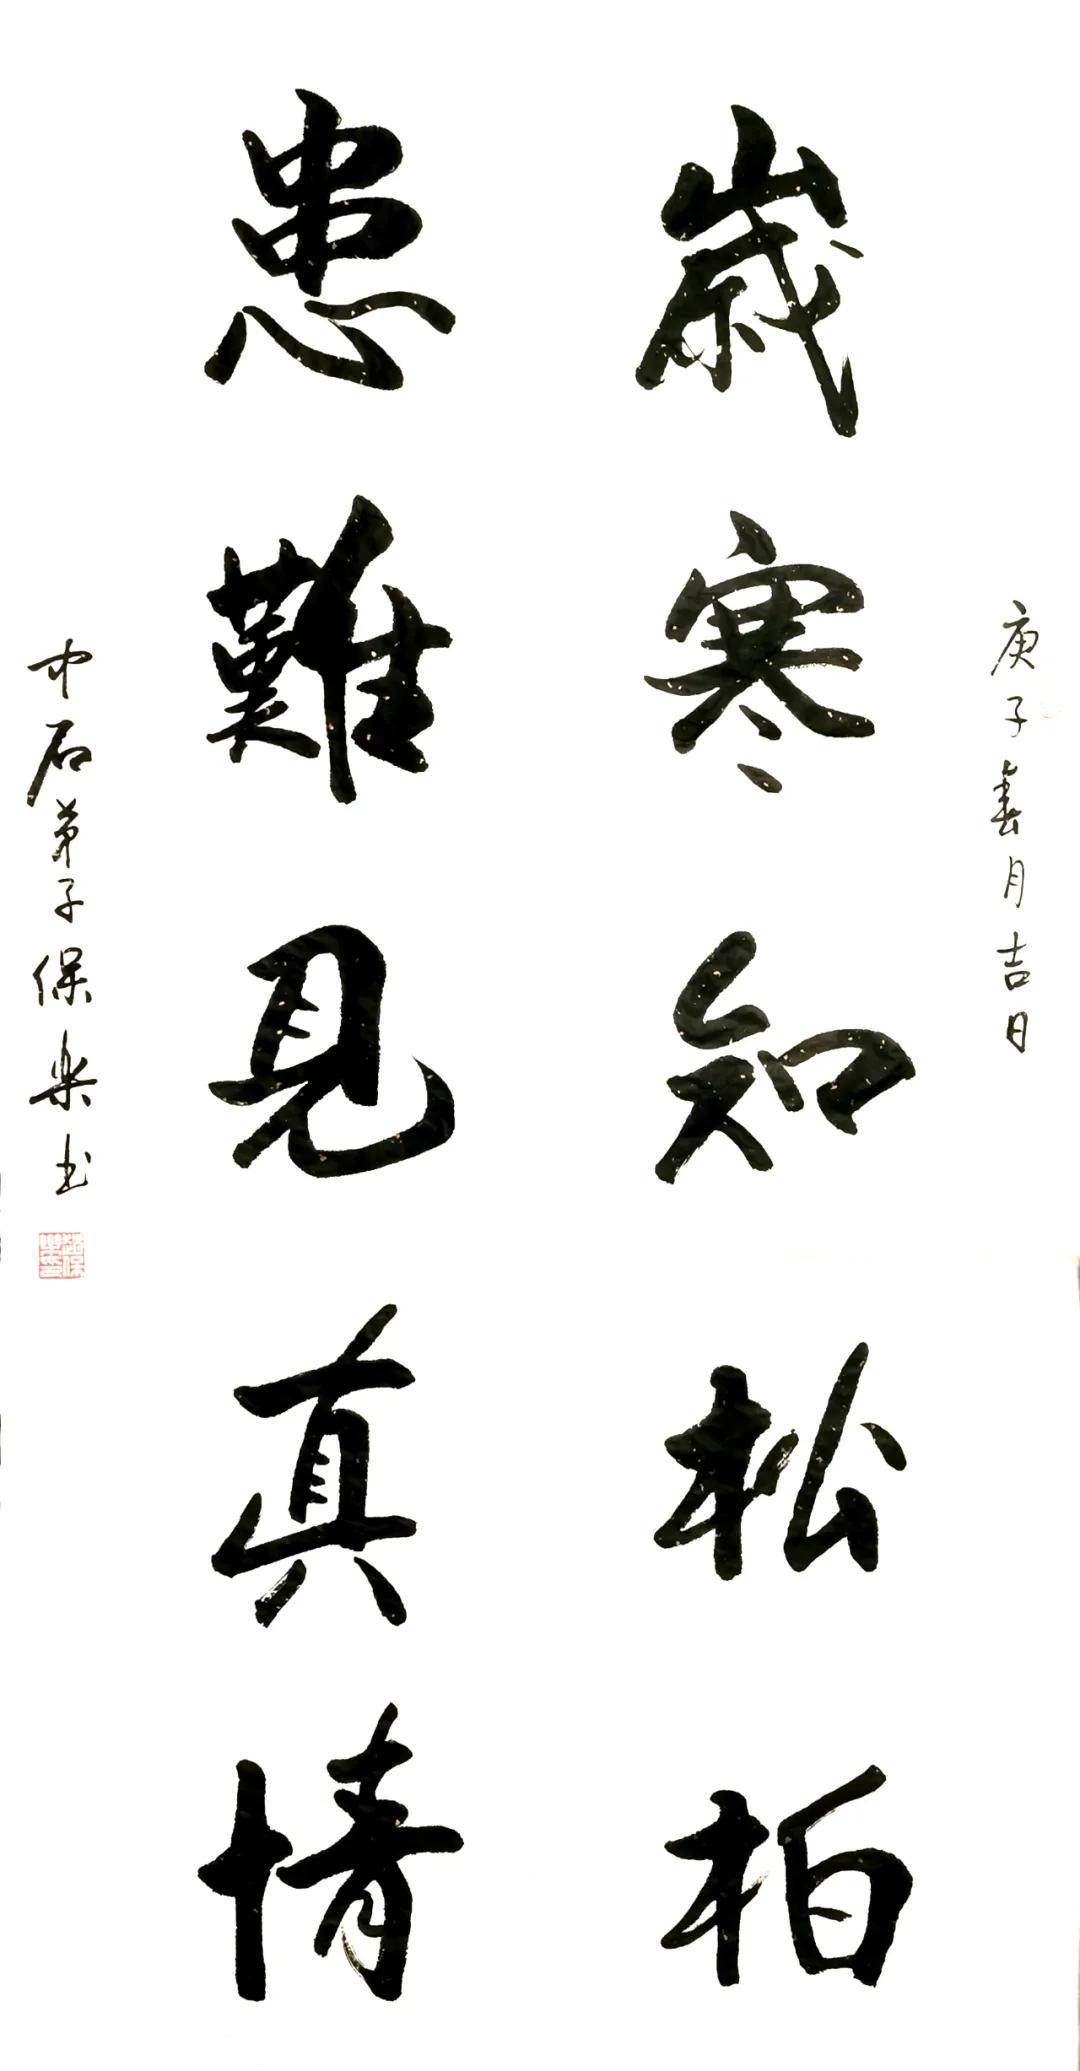 庚子春月吉日
歲寒知松柏
患難見真情
中石弟子保樂书